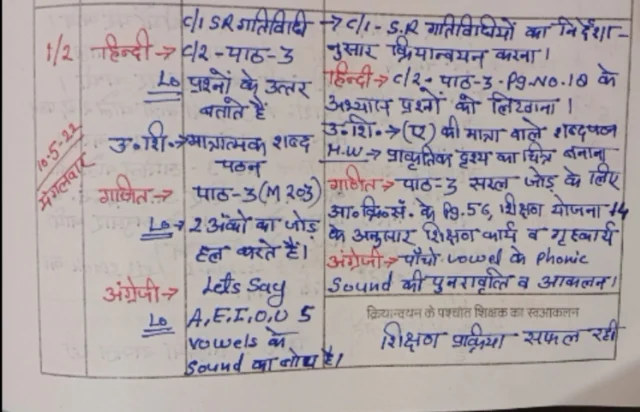 10-5-22
मंगलवार
1/2 हिन्दी→
C/1 SR गतिविधी
C/2-पाठ-3
Lo प्रश्नों के उत्तर
बताते है
उ.शि.→मात्रात्मक शब्द
पठन
गणित→ पाठ-3(M203)
Lo→2 अंको का जोड़
हल करते हैं।
अंग्रेजी→ Let's Say
Lo A,E,I,O,U 5
vowels के
Sound का बोध है।
→C/1-S.R गतिविधियों का निर्देशा-
नुसार क्रियान्वयन करना।
हिन्दी→ C/2-पाठ-3-Pg.No.18 के
अभ्यास प्रश्नों को लिखाना।
उ.शि.→(ए) की मात्रा वाले शब्द पठन
H.W→प्राकृतिक दृश्य का चित्र बनाना
गणित→ पाठ-3 सरल जोड़ के लिए
आ.क्रि.सं. के Pg.56, शिक्षण योजना 14
के अनुसार शिक्षण कार्य व गृहकार्य
अंग्रेजी→ पाँचो vowel के Phonic
Sound की पुनरावृत्ति व आकलन।
क्रियान्वयन के पश्चात शिक्षक का स्वआकलन
शिक्षण प्रक्रिया सफल रही